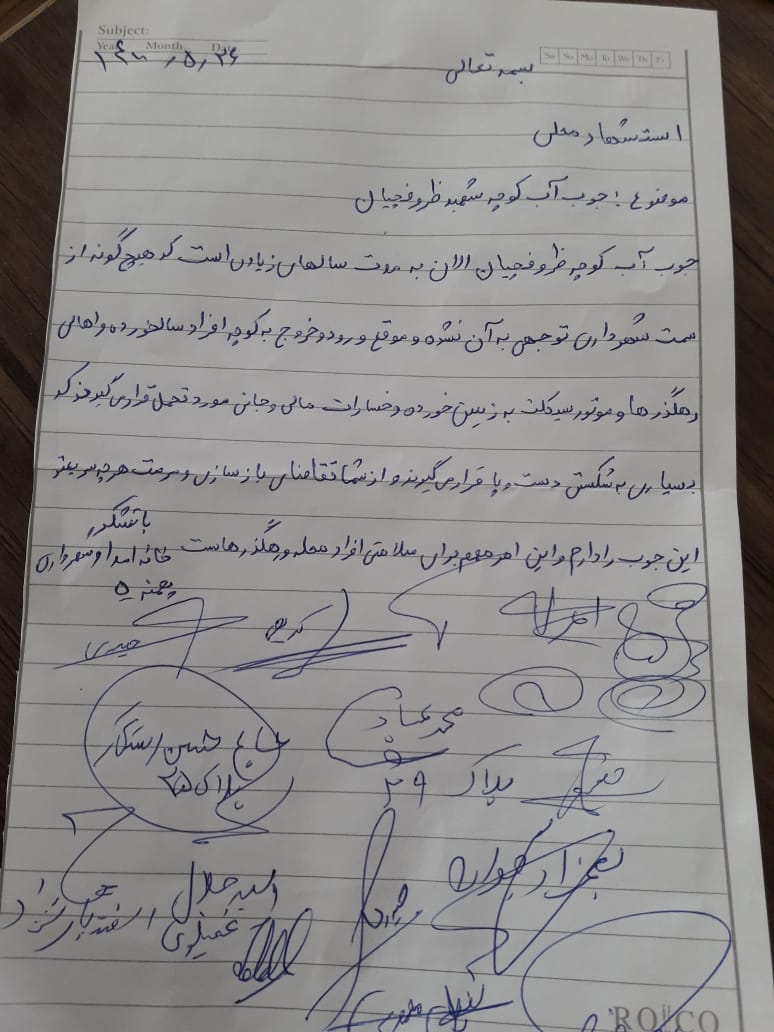 Subject:
Year Month Date
۱۴۰۰/۵/۲۶
Sa Su Mo Tu We Th Fr
بسمه تعالی
استشهاد محلی
موضوع: جوب آب کوچه شهید ظروفچیان
جوب آب کوچه ظروفچیان الان به مدت سالهای زیادی است که هیچ گونه از
سمت شهرداری توجهی به آن نشده و موقع ورود و خروج به کوچه افراد سالخورده و اهالی
رهگذرها و موتور سیکلت به زمین خورده و خسارات مالی و جانی مورد تحمل قرار می گیرند که
بسیاری به شکستن دست و پا قرار می گیرند و از شما تقاضای باز سازی و مرمت هر چه سریعتر
این جوب را دارم و این امر مهم برای سلامتی افراد محله و رهگذرهاست
با تشکر
حیدری
محمد
پلاک ۲۹
پلاک ۲۵
بهزاد
سید جلال
ROCO